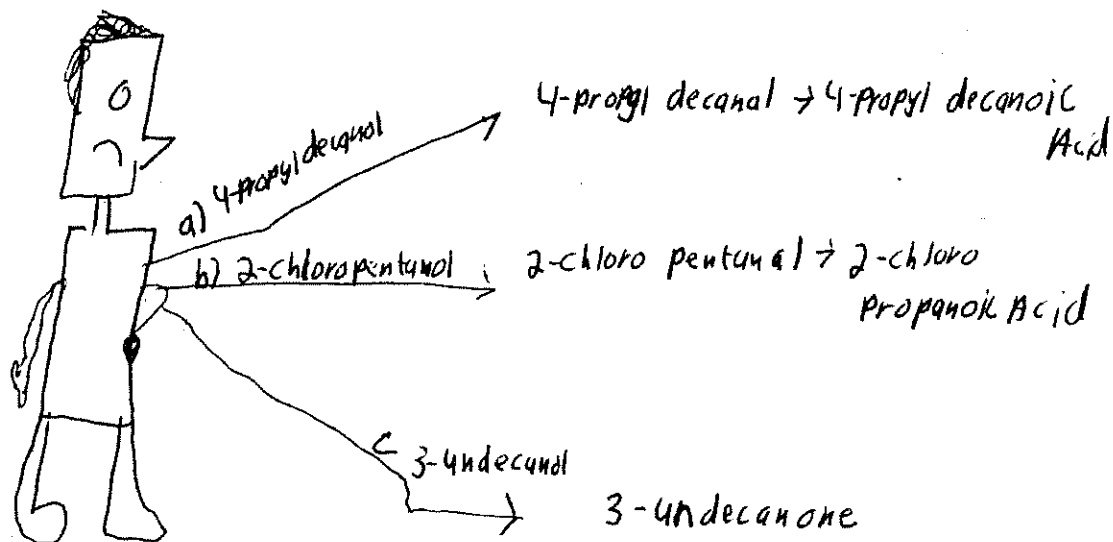 4-propyl decanal → 4-propyl decanoic
Acid
a) 4-propyl decanol
b) 2-chloropentanol
2-chloro pentanal → 2-chloro
Propanoic Acid
c 3-undecanol
3-undecanone